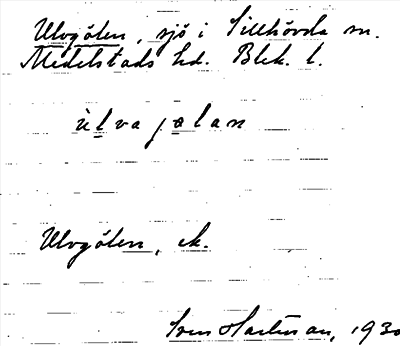 Ulvgölen, sjö i Sillhövda sn.
Medelstads hd. Blek. l.
ùlvajølan
Ulvgölen, ek.
Sven Hartman, 1930